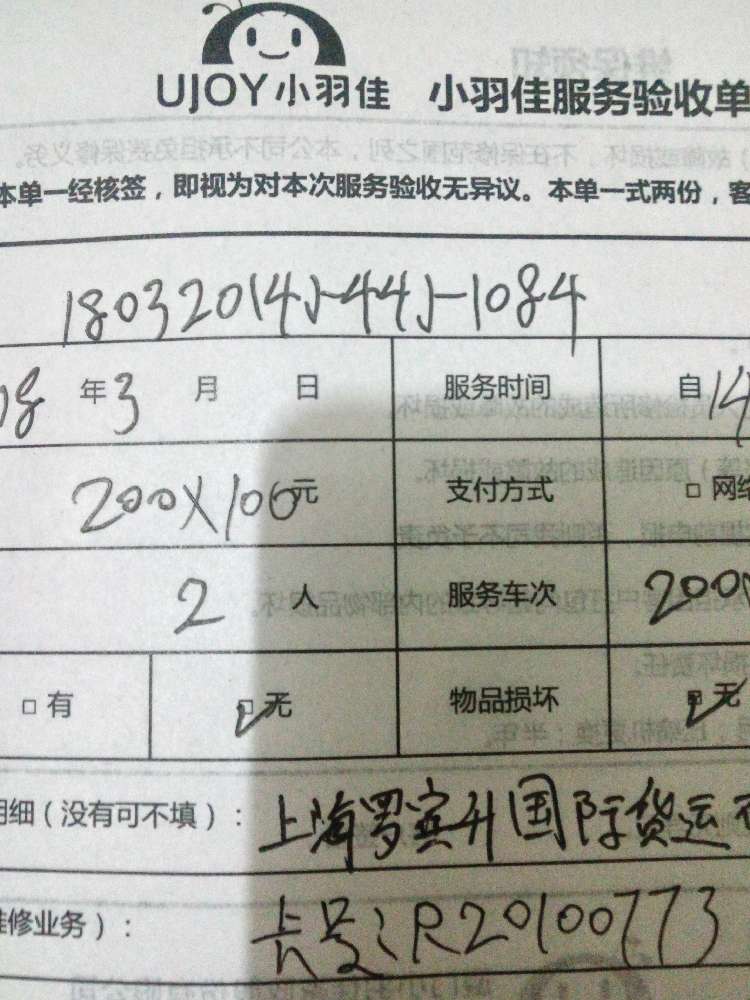 UJOY小羽佳 小羽佳服务验收单
本单一经核签，即视为对本次服务验收无异议。本单一式两份，客
18032014545-1084
08 年 3 月 日 服务时间 自 14
200X100元 支付方式 □ 网络
2 人 服务车次 200
□ 有 □ 无 物品损坏 无
明细（没有可不填）： 上海罗宾升国际货运
维修业务）： 卡号：R20100773